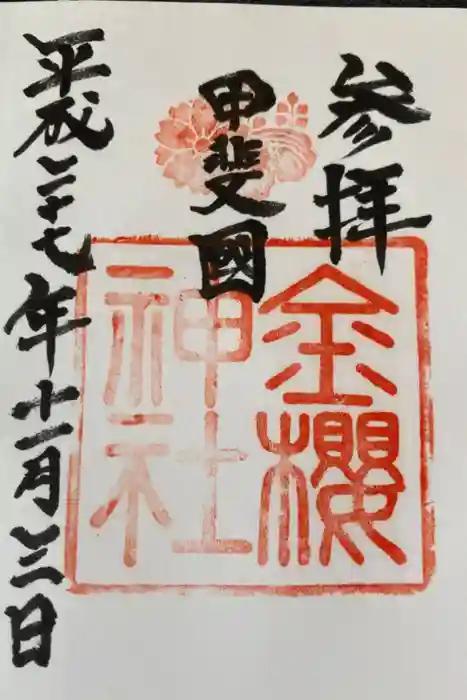 参拝
甲斐國
金櫻
神社
平成二十七年十一月三日